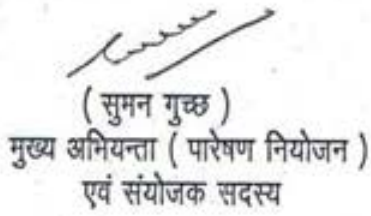 ( सुमन गुच्छ )
मुख्य अभियन्ता ( पारेषण नियोजन )
एवं संयोजक सदस्य